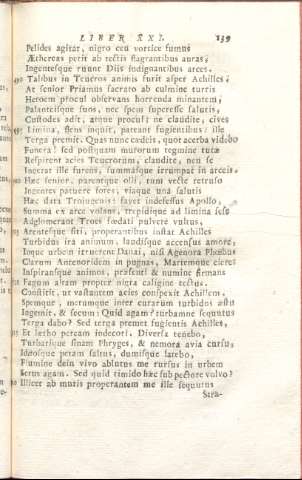 LIBER XXI. 139
Pelides agitat, nigro ceu vortice fumus
Æthereas petit ab tectis flagrantibus auras;
Ingentesque ruunt Diis indignantibus arces.
Talibus in Teucros animis furit asper Achilles;
At senior Priamus sacrato ab culmine turris
Heroem procul observans horrenda minantem,
Palantesque suos, nec spem superesse salutis,
Custodes adit, atque procul: ne claudite, cives
Limina, flens inquit, pateant fugientibus: ille
Terga premit. Quas nunc cædeis, quot acerba videbo
Funera! sed postquam murorum tegmine tutæ
Respirent acies Teucrorum, claudite, neu se
Inferat ille furens, summasque irrumpat in arceis.
Hæc senior, parentque olli, tum vecte retruso
Ingentes patuere fores, viaque una salutis
Hæc data Trojugenis: favet indefessus Apollo,
Summa ex arce volans, trepidique ad limina sese
Adglomerant Troes fœdati pulvere vultus,
Arentesque siti, properantibus instat Achilles
Turbidus ira animum, laudisque accensus amore,
Inque urbem irruerent Danai, nisi Agenora Phœbus
Clarum Antenoridem in pugnas, Martemque cieret
Inspiransque animos, præsenti & numine firmans
Fagum altam propter nigra caligine tectus.
Constitit, ut vastantem acies conspexit Achillem,
Spemque, metumque inter curarum turbidus æstu
Ingemit, & secum: Quid agam? turbamne sequutus
Terga dabo? Sed terga premet fugientis Achilles,
Et letho peream indecori. Diversa tenebo,
Turbatique sinam Phryges, & nemora avia cursu,
Idæosque petam saltus, dumisque latebo,
Flumine dein vivo ablutus me rursus in urbem
Serus agam. Sed quid timido hæc sub pectore volvo?
Illicet ab muris properantem me ille sequutus
Stra-